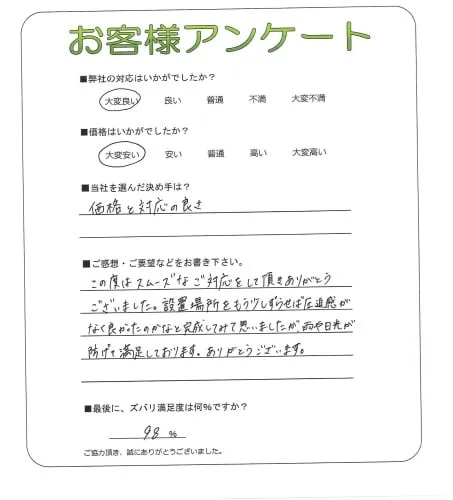 お客様アンケート
■弊社の対応はいかがでしたか？
大変良い 良い 普通 不満 大変不満
■価格はいかがでしたか？
大変安い 安い 普通 高い 大変高い
■当社を選んだ決め手は？
価格と対応の良さ
■ご感想・ご要望などをお書き下さい。
この度はスムーズなご対応をして頂きありがとう
ございました。設置場所をもう少しずらせば圧迫感が
なく良かったのかなと完成してみて思いましたが、雨や日光が
防げて満足しております。ありがとうございます。
■最後に、ズバリ満足度は何%ですか？
98 %
ご協力頂き、誠にありがとうございました。